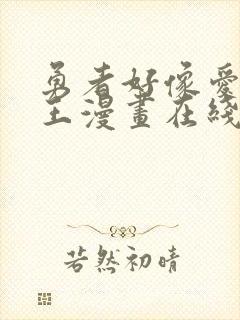 勇者好像愛
王漫畫在綫
若然初晴